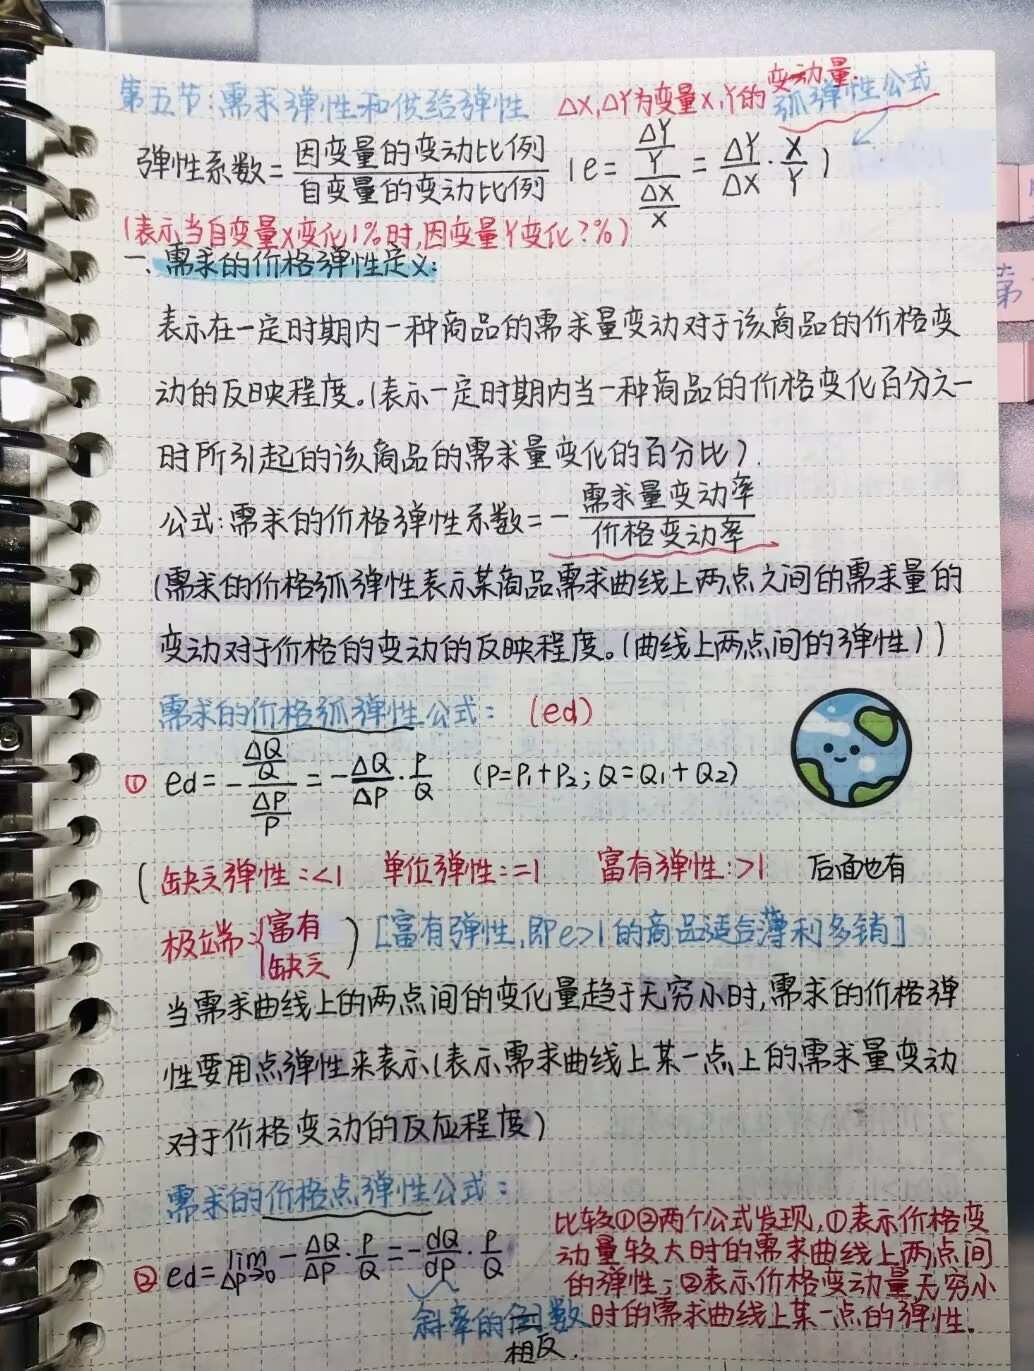 第五节:需求弹性和供给弹性 ΔX,ΔY为变量X,Y的变动量. 弧弹性公式
弹性系数=因变量的变动比例/自变量的变动比例 (e=(ΔY/Y)/(ΔX/X)=ΔY/ΔX·X/Y)
(表示当自变量X变化1%时,因变量Y变化?%)
一、需求的价格弹性定义:
表示在一定时期内一种商品的需求量变动对于该商品的价格变
动的反映程度。(表示一定时期内当一种商品的价格变化百分之一
时所引起的该商品的需求量变化的百分比).
公式:需求的价格弹性系数=-需求量变动率/价格变动率
(需求的价格弧弹性表示某商品需求曲线上两点之间的需求量的
变动对于价格的变动的反映程度。(曲线上两点间的弹性))
需求的价格弧弹性公式: (ed)
① ed=-(ΔQ/Q)/(ΔP/P)=-ΔQ/ΔP·P/Q (P=P₁+P₂;Q=Q₁+Q₂)
(缺乏弹性:<1 单位弹性:=1 富有弹性:>1 后面也有
极端:{富有 缺乏) [富有弹性,即e>1的商品适合薄利多销]
当需求曲线上的两点间的变化量趋于无穷小时,需求的价格弹
性要用点弹性来表示(表示需求曲线上某一点上的需求量变动
对于价格变动的反应程度)
需求的价格点弹性公式:
② ed=lim ΔP→0 -ΔQ/ΔP·P/Q=-dQ/dP·P/Q
斜率的倒数
相反.
比较①②两个公式发现,①表示价格变
动量较大时的需求曲线上两点间
的弹性;②表示价格变动量无穷小
时的需求曲线上某一点的弹性.
第